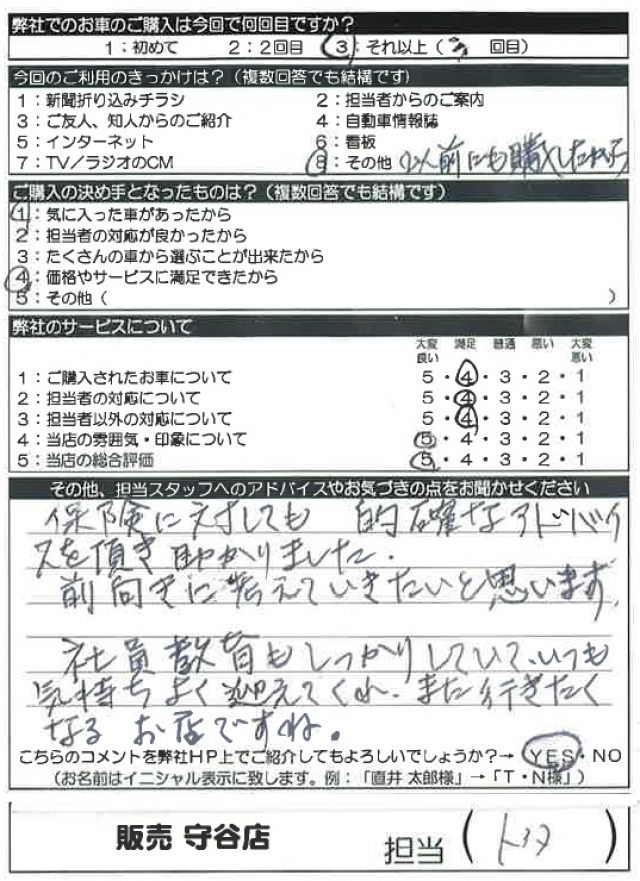 弊社でのお車のご購入は今回で何回目ですか？
1：初めて　2：2回目　3：それ以上（　回目）
今回のご利用のきっかけは？（複数回答でも結構です）
1：新聞折り込みチラシ　2：担当者からのご案内
3：ご友人、知人からのご紹介　4：自動車情報誌
5：インターネット　6：看板
7：TV／ラジオのCM　8：その他 以前にも購入したから
ご購入の決め手となったものは？（複数回答でも結構です）
1：気に入った車があったから
2：担当者の対応が良かったから
3：たくさんの車から選ぶことが出来たから
4：価格やサービスに満足できたから
5：その他（　）
弊社のサービスについて
大変良い　満足　普通　悪い　大変悪い
1：ご購入されたお車について　5・4・3・2・1
2：担当者の対応について　5・4・3・2・1
3：担当者以外の対応について　5・4・3・2・1
4：当店の雰囲気・印象について　5・4・3・2・1
5：当店の総合評価　5・4・3・2・1
その他、担当スタッフへのアドバイスやお気づきの点をお聞かせください
保険に対しても 的確なアドバイ
スを頂き助かりました.
前向きに考えていきたいと思います.
社員教育もしっかりしていて、いつも
気持ちよく迎えてくれ、また行きたく
なる お店ですね。
こちらのコメントを弊社HP上でご紹介してもよろしいでしょうか？→ YES・NO
（お名前はイニシャル表示に致します。例：「直井 太郎様」→「T・N様」）
販売 守谷店　担当（　）